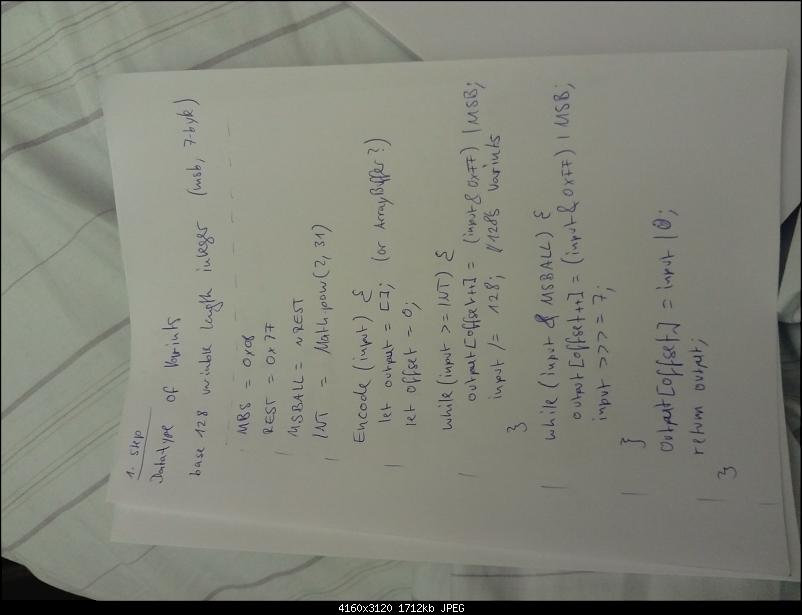 1. Step
Datatype of Varints
base 128 variable length integer (msb, 7-byte)
MBS = 0x08
REST = 0x7F
MSBALL = ~REST
INT = Math.pow(2, 31)
Encode (input) {
let output = []; (or ArrayBuffer?)
let offset = 0;
while (input >= INT) {
output[offset++] = (input & 0xFF) | MSB;
input /= 128; //128b Varints
}
while (input & MSBALL) {
output[offset++] = (input & 0xFF) | MSB;
input >>>= 7;
}
Output[offset] = input | 0;
return output;
}
4160x3120 1712kb JPEG